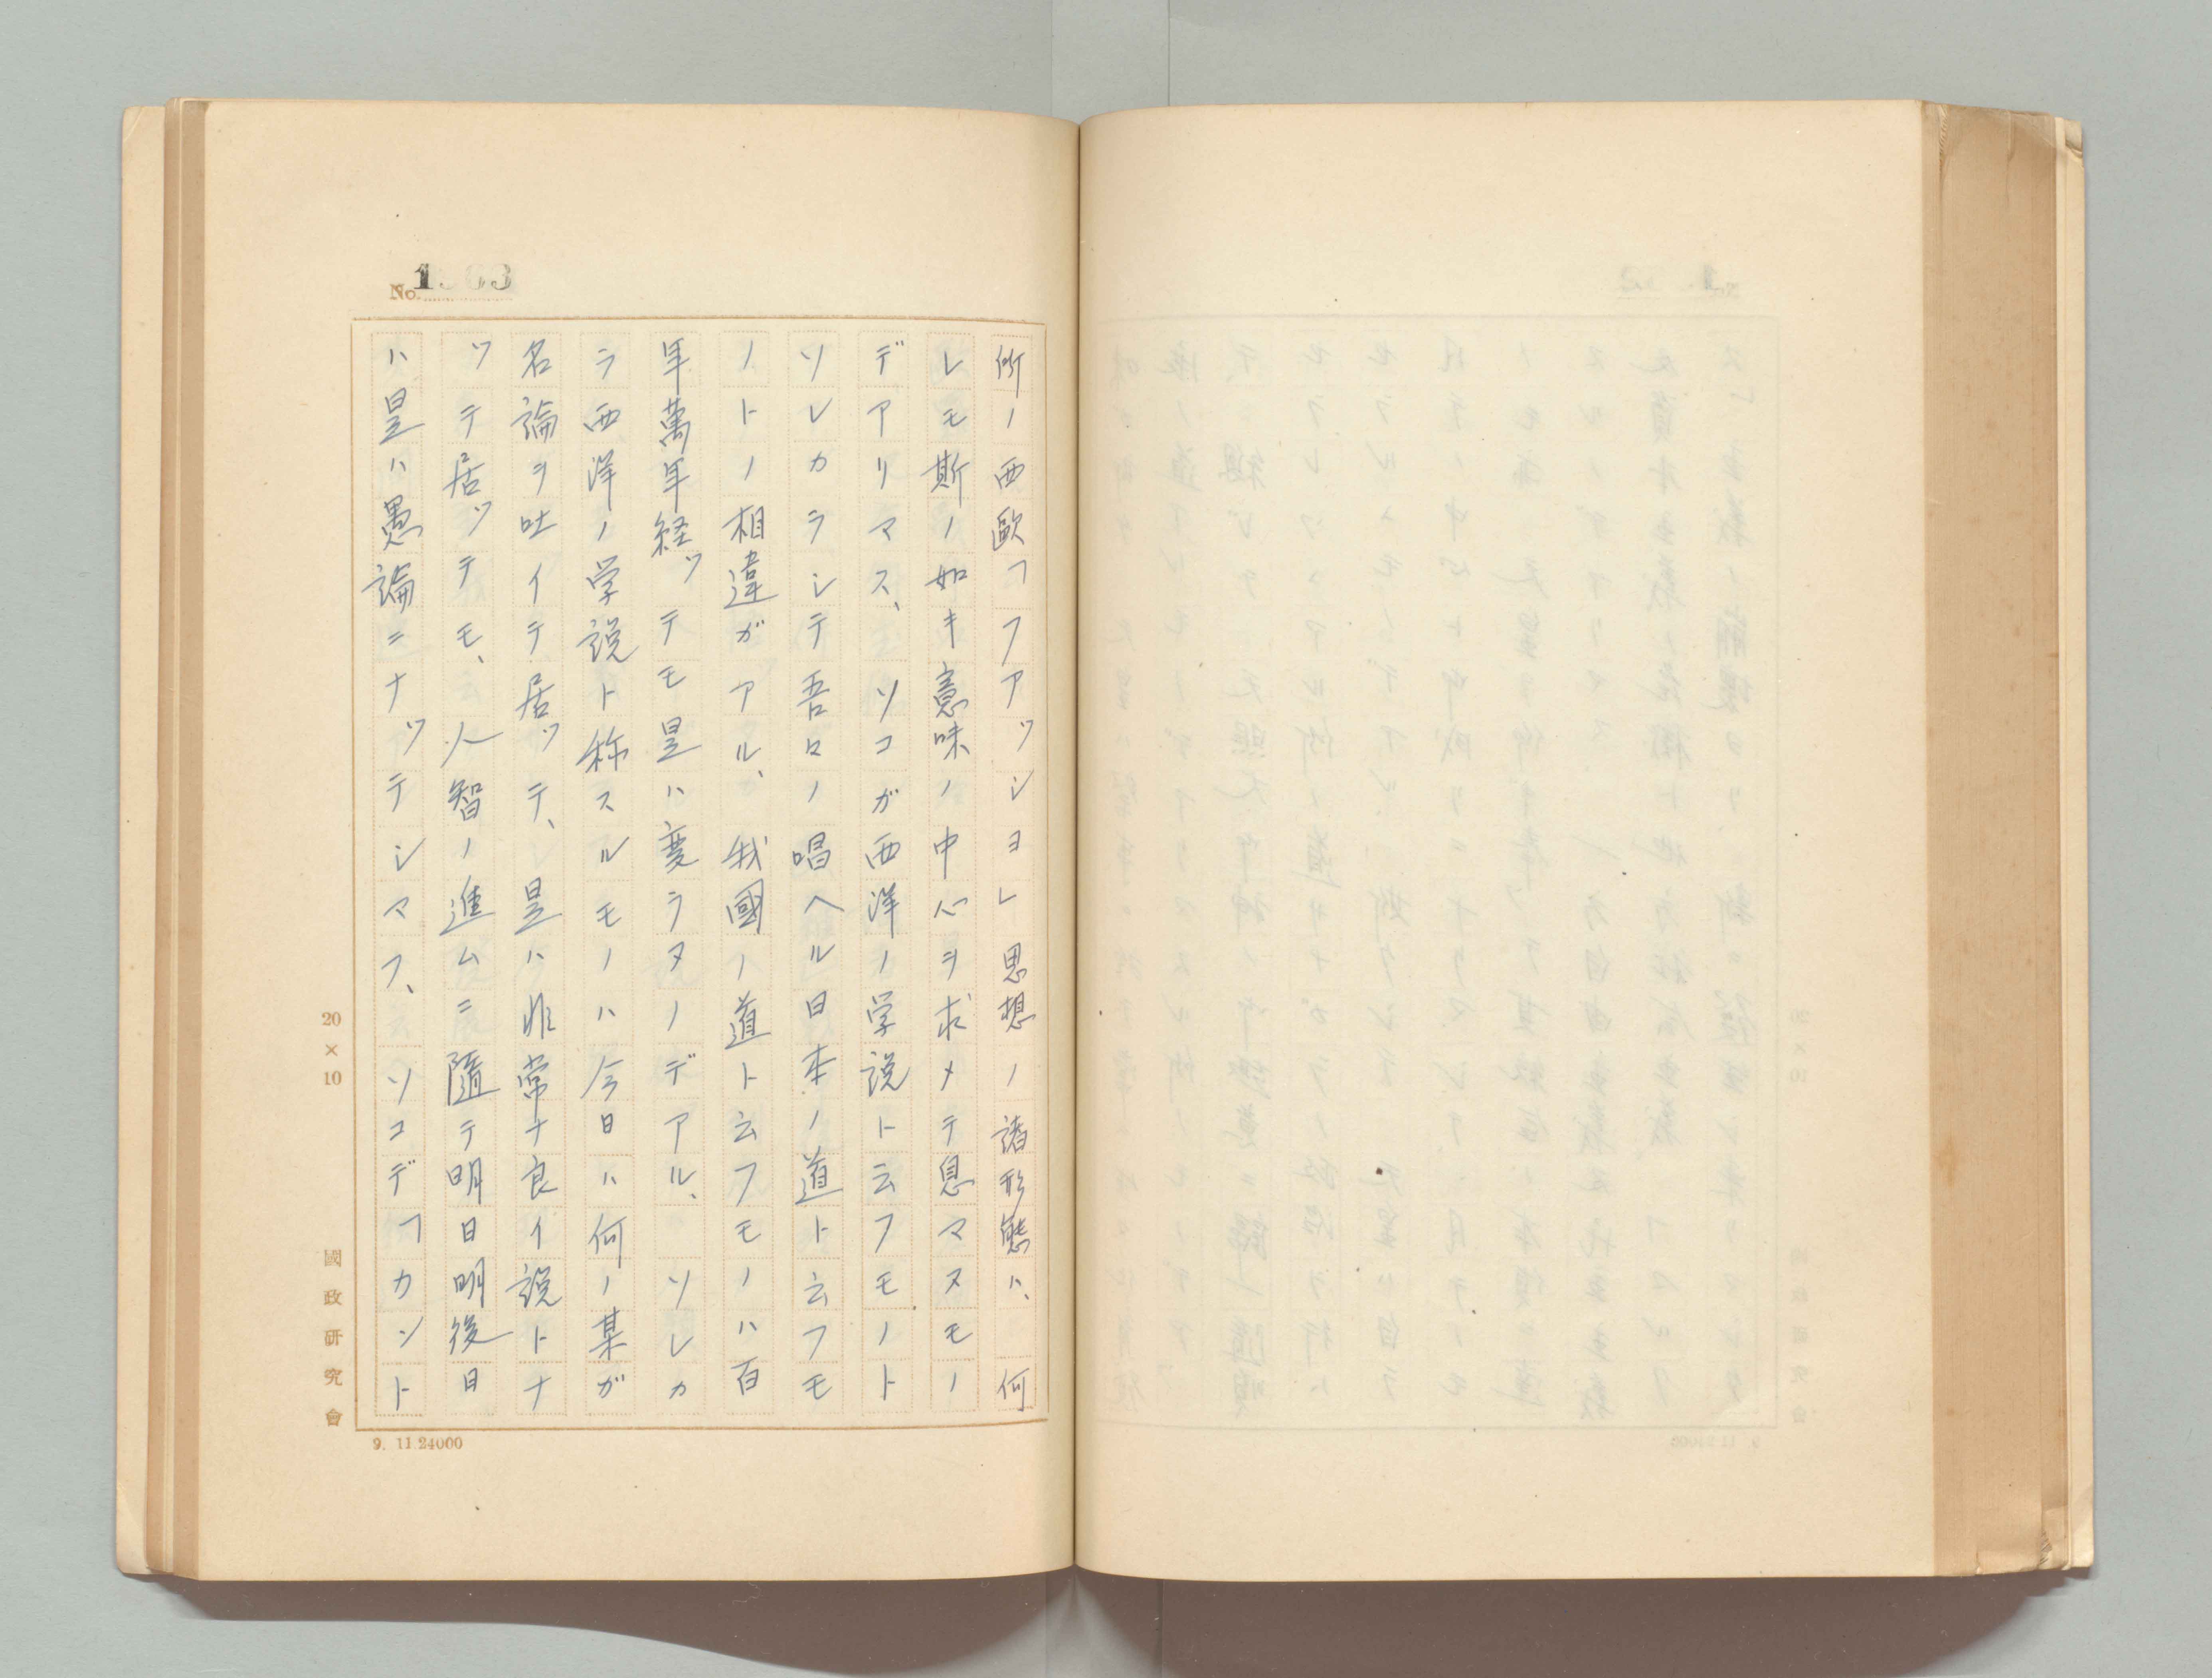 No. 1503
所ノ西歐フファッショレ思想ノ諸形態ハ、何
レモ斯ノ如キ意味ノ中心ヲ求メテ息マヌモノ
デアリマス、ソコガ西洋ノ学説ト云フモノト
ソレカラシテ吾々ノ唱ヘル日本ノ道ト云フモ
ノトノ相違ガアル、我國ノ道ト云フモノハ百
年萬年経ッテモ是ハ変ラヌノデアル、ソレカ
ラ西洋ノ学説ト称スルモノハ今日ハ何ノ某ガ
名論ヲ吐イテ居ッテ、是ハ非常ナ良イ説トナ
ッテ居ッテモ、人智ノ進ムニ隨テ明日明後日
ハ是ハ愚論ニナッテシマフ、ソコデフカント
20×10
國政研究會
9. 11.24000